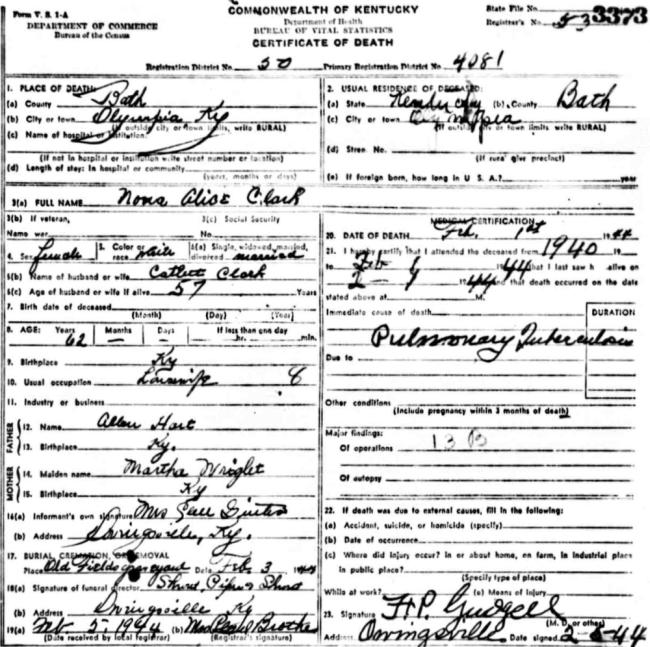 Form V. S. 1-A
DEPARTMENT OF COMMERCE
Bureau of the Census
COMMONWEALTH OF KENTUCKY
Department of Health
BUREAU OF VITAL STATISTICS
CERTIFICATE OF DEATH
State File No. 3373
Registrar's No. 53
Registration District No. 50 Primary Registration District No. 4081
1. PLACE OF DEATH:
(a) County Bath
(b) City or town Olympia Ky
(If outside city or town limits, write RURAL)
(c) Name of hospital or institution:
(If not in hospital or institution write street number or location)
(d) Length of stay: In hospital or community
(years, months or days)
2. USUAL RESIDENCE OF DECEASED:
(a) State Kentucky (b) County Bath
(c) City or town Olympia
(If outside city or town limits write RURAL)
(d) Street No.
(If rural give precinct)
(e) If foreign born, how long in U. S. A.? year
3(a) FULL NAME Nona Alice Clark
3(b) If veteran, Name war
3(c) Social Security No.
4. Sex female 5. Color or race white 6(a) Single, widowed, married, divorced married
6(b) Name of husband or wife Catlett Clark
6(c) Age of husband or wife if alive 57 Years
7. Birth date of deceased
(Month) (Day) (Year)
8. AGE: Years 62 Months — Days — If less than one day hr. min.
9. Birthplace Ky
10. Usual occupation Housewife 8
11. Industry or business
FATHER
12. Name Allen Hart
13. Birthplace Ky.
MOTHER
14. Maiden name Martha Wright
15. Birthplace Ky
16(a) Informant's own signature Mrs
(b) Address Owingsville, Ky.
17. BURIAL, CREMATION, OR REMOVAL
Place Old Fields graveyard Date Feb 3 1944
18(a) Signature of funeral director
(b) Address Owingsville Ky
19(a) Feb 5-1944 (b) Mrs Brother
(Date received by local registrar) (Registrar's signature)
MEDICAL CERTIFICATION
20. DATE OF DEATH Feb. 1st 1944
21. I hereby certify that I attended the deceased from 1940 19
to Feb 1 1944 that I last saw h alive on
2-1 1944 and that death occurred on the date
stated above at M.
Immediate cause of death DURATION
Pulmonary Tuberculosis
Due to
Other conditions
(Include pregnancy within 3 months of death)
Major findings:
Of operations 13 B
Of autopsy
22. If death was due to external causes, fill in the following:
(a) Accident, suicide, or homicide (specify)
(b) Date of occurrence
(c) Where did injury occur? In or about home, on farm, in industrial place
in public place?
(Specify type of place)
While at work? (e) Means of injury
23. Signature H P. Gudgell
(M. D. or other)
Address Owingsville Date signed 2-5-44